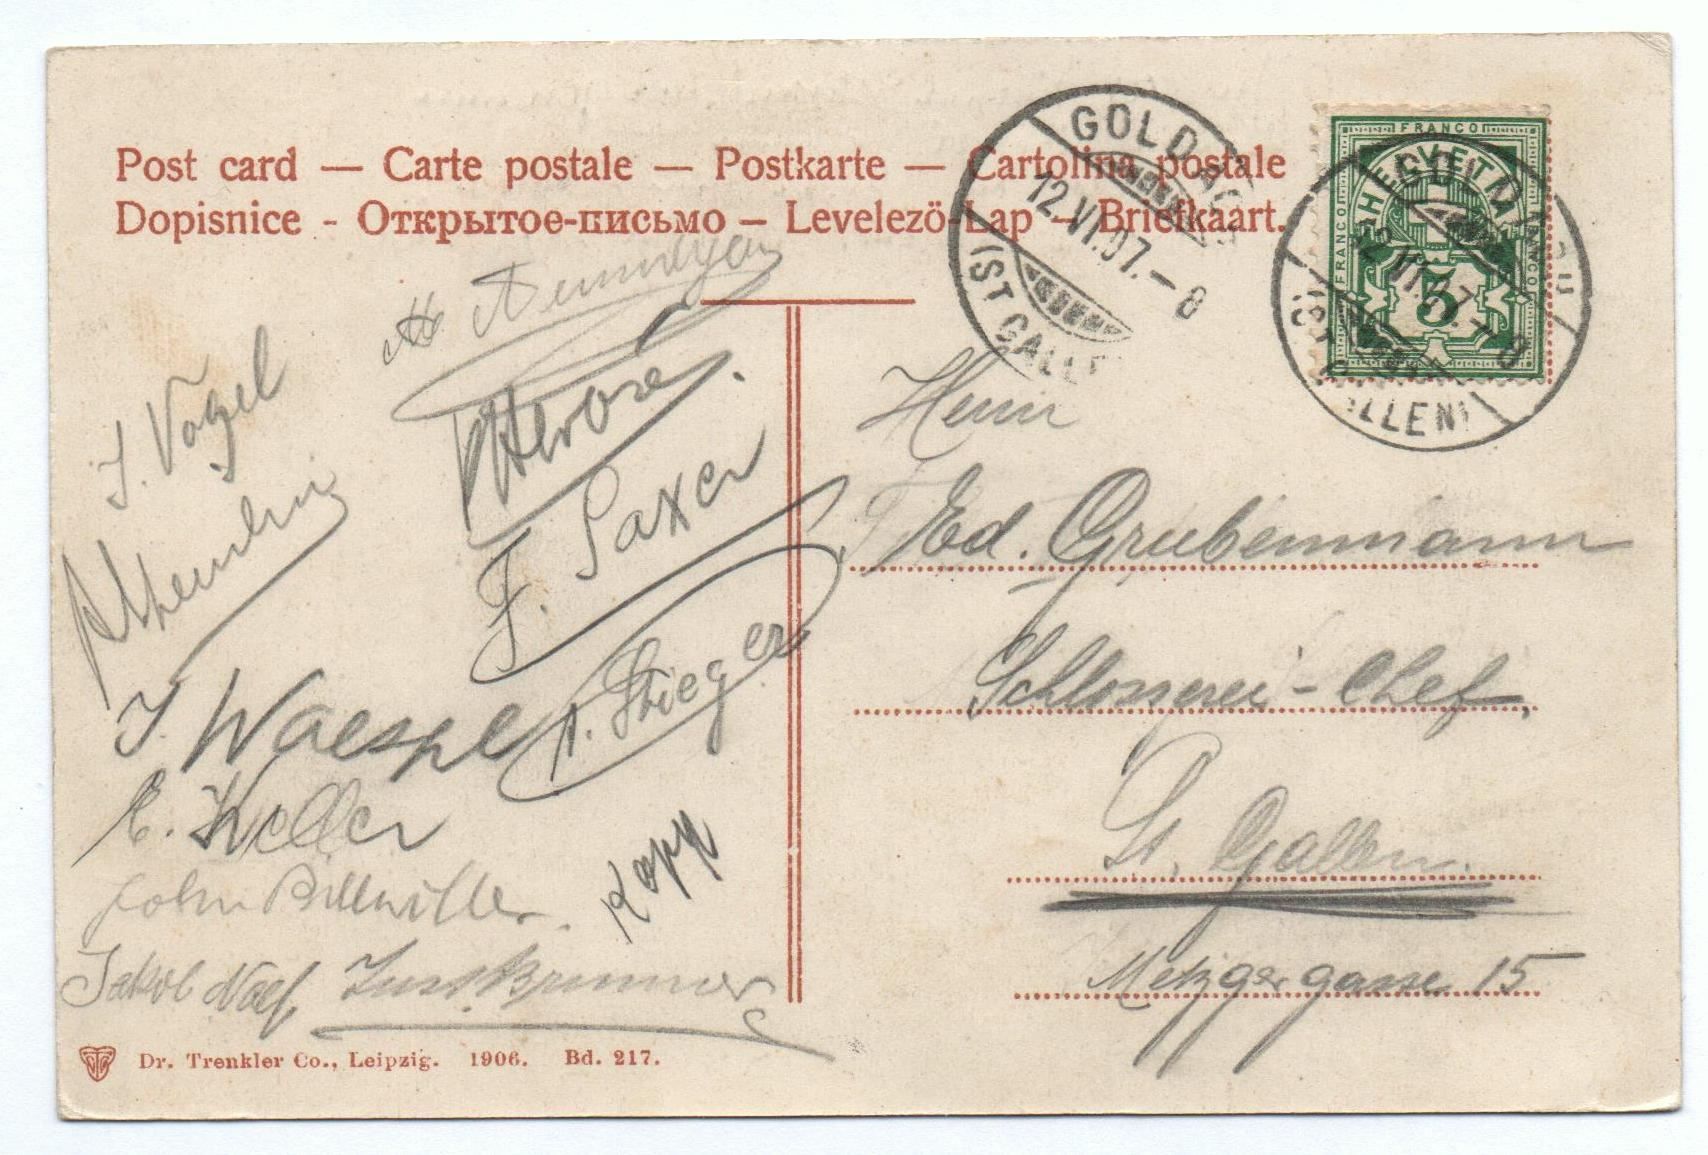 Post card — Carte postale — Postkarte — Cartolina postale
Dopisnice - Открытое-письмо — Levelezö-Lap — Briefkaart.
GOLDACH
12.VI.07.–8
(ST GALLEN)
FRANCO
HELVETIA
FRANCO
FRANCO
5
GOLDACH
12.VI.07.–8
(ST GALLEN)
J. Vogel
F. Saxer
J. Waespe
A. Stieger
E. Keller
John Billwiller
Kopp
Jakob Naef
Just Brunner
Herrn
Ed. Grubenmann
Schlosserei-Chef,
St. Gallen.
Metzgergasse 15
Dr. Trenkler Co., Leipzig. 1906. Bd. 217.